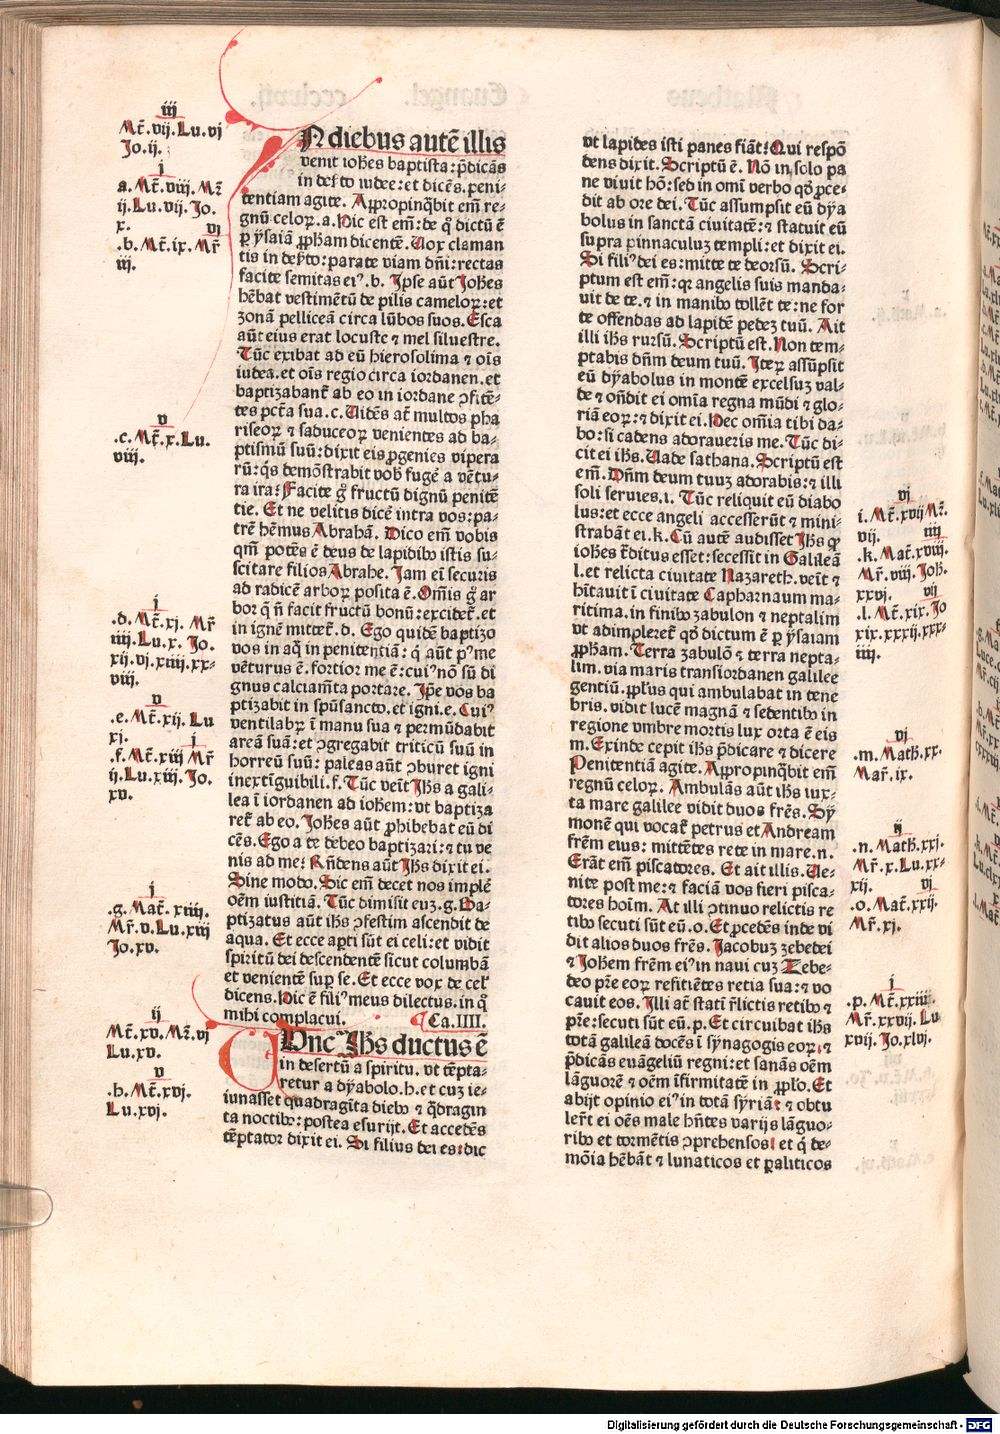 iij
Mt̄.vij.Lu.vj
Jo.ij.
j
a.Mt̄.viij.Mr̄
ij.Lu.vij.Jo.
x. vj
.b.Mt̄.ix.Mr̄
iij.
v
.c.Mt̄.x.Lu.
viij.
j
.d.Mt̄.xj.Mr̄
iiij.Lu.x.Jo.
xij.vj.xiiij.xx-
viij.
v
.e.Mt̄.xij.Lu
xj. j
.f.Mt̄.xiij Mr̄
ij.Lu.xiij.Jo.
xv.
j
.g.Mat̄.xiiij.
Mr̄.v.Lu.xiij
Jo.xv.
ij
Mt̄.xv.Mr̄.vj
Lu.xv.
v
.h.Mt̄.xvj.
Lu.xvj.
N diebus autē illis
venit ioħes baptista: p̄dicās
in deſ̄to iudee: et dicēs. peni-
tentiam agite. Appropinq̄bit em̄ re-
gnū celoꝝ.a. Hic est em̄: de q̊ dictū ē
ꝑ ysaiā ꝓpħam dicentē. Vox claman
tis in deſ̄to: parate viam dn̄i: rectas
facite semitas eiꝰ.b. Ipse aūt Joħes
hēbat vestimētū de pilis cameloꝝ: et
zonā pelliceā circa lūbos suos. Esca
aūt eius erat locuste ⁊ mel siluestre.
Tūc exibat ad eū hierosolima ⁊ oīs
iudea. et oīs regio circa iordanen. et
baptizabant̄ ab eo in iordane ꝯfitē-
tes pctā sua.c. Uidēs at̄ multos pha
riseoꝝ ⁊ saduceoꝝ venientes ad ba-
ptismū suū: dixit eis ꝓgenies vipera
rū: q̊s demōstrabit vob̄ fuge̅ a vētu-
ra ira: Facite g̊ fructū dignū penitē
tie. Et ne velitis dice̅ intra vos: pa-
trē hēmus Abrahā. Dico em̄ vobis
qm̄ potēs ē deus de lapidibꝰ istis su-
scitare filios Abrahe. Jam ei̅ securis
ad radicē arboꝝ posita ē. Om̄is g̊ ar
bor q̄ n̄ facit fructū bonū: excidet̄. et
in ignē mittet̄.d. Ego quidē baptizo
vos in aq̄ in penitentiā: q̊ aūt pꝰ me
vēturus ē. fortior me ē: cuiꝰ nō sū di
gnus calciam̄ta portare. Ip̄e vos ba
ptizabit in spūsancto. et igni.e. Cuiꝰ
ventilabꝝ ī manu sua ⁊ permūdabit
areā suā: et ꝯgregabit triticū suū in
horreū suū: paleas aūt ꝯburet igni
inextīguibili.f. Tūc veīt Iħs a gali-
lea ī iordanen ad ioħem: vt baptiza
ret̄ ab eo. Joħes aūt ꝓhibebat eū di
cēs. Ego a te debeo baptizari: ⁊ tu ve
nis ad me: Rn̄dens aūt Jħs dixit ei.
Sine modo. Sic em̄ decet nos imple̅
oēm iustitiā. Tūc dimisit eū.g. Ba-
ptizatus aūt iħs ꝯfestim ascendit de
aqua. Et ecce apti sūt ei celi: et vidit
spiritū dei descendentē sicut columbā
et venientē suꝑ se. Et ecce vox de cel̄
dicens. Hic ē filiꝰ meus dilectus. in q̊
mihi complacui. Ca.IIII.
TUnc Iħs ductus ē
in desertū a spiritu. vt tēpta-
retur a dyabolo.h. et cuꝫ ie-
iunasset quadragīta diebꝰ ⁊ q̄dragin
ta noctibꝰ: postea esurijt. Et accedēs
tēptator dixit ei. Si filius dei es: dic
vt lapides isti panes fiāt: Qui respō
dens dixit. Scriptū ē. Nō in solo pa
ne viuit hō: sed in om̄i verbo qd̄ ꝓce-
dit ab ore dei. Tūc assumpsit eū dya
bolus in sanctā ciuitatē: ⁊ statuit eū
supra pinnaculuꝫ templi: et dixit ei.
Si filiꝰ dei es: mitte te deorsū. Scri-
ptum est em̄: qꝛ angelis suis manda-
uit de te. ⁊ in manibꝰ tollēt te: ne for
te offendas ad lapidē pedeꝫ tuū. Ait
illi iħs rursū. Scriptū est. Non tem-
ptabis dn̄m deum tuū. Iteꝝ assūpsit
eū dyabolus in montē excelsuꝫ val-
de ⁊ on̄dit ei om̄ia regna mūdi ⁊ glo-
riā eoꝝ: ⁊ dixit ei. Hec om̄ia tibi da-
bo: si cadens adoraueris me. Tūc di-
cit ei iħs. Uade sathana. Scriptū est
em̄. Dn̄m deum tuuꝫ adorabis: ⁊ illi
soli seruies.i. Tūc reliquit eū diabo
lus: et ecce angeli accesserūt ⁊ mini-
strabāt ei.k. Cū autē audisset Jħs ꝙ
ioħes t̄ditus esset: secessit in Galileā
l. et relicta ciuitate Nazareth. veīt ⁊
hītauit ī ciuitate Capharnaum ma-
ritima. in finibꝰ zabulon ⁊ neptalim
vt adimpleret̄ qd̄ dictum ē ꝑ ysaiam
ꝓpħam. Terra zabulō ⁊ terra nepta-
lim. via maris transiordanen galilee
gentiū. ppl̄us qui ambulabat in tene
bris. vidit lucē magnā ⁊ sedentibꝰ in
regione vmbre mortis lux orta ē eis
m. Exinde cepit iħs p̄dicare ⁊ dicere
Penitentiā agite. Appropinq̄bit em̄
regnū celoꝝ. Ambulās aūt iħs iux-
ta mare galilee vidit duos frēs. Sy
monē qui vocat̄ petrus et Andream
frēm eius: mittētes rete in mare.n.
Erāt em̄ piscatores. Et ait illis. Ue-
nite post me: ⁊ faciā vos fieri pisca-
tores hoīm. At illi ꝯtinuo relictis re
tibꝰ secuti sūt eū.o. Et ꝓcedēs inde vi
dit alios duos frēs. Jacobuꝫ zebedei
⁊ Joħem frēm eiꝰ in naui cuꝫ Zebe-
deo pr̄e eoꝝ refitiētes retia sua: ⁊ vo
cauit eos. Illi at̄ statī r̄lictis retibꝰ ⁊
pr̄e: secuti sūt eū.p. Et circuibat iħs
totā galileā docēs ī synagogis eoꝝ: ⁊
p̄dicās euāgeliū regni: et sanās oēm
lāguorē ⁊ oēm īfirmitatē in pp̄lo. Et
abijt opinio eiꝰ in totā syriā: ⁊ obtu
ler̄t ei oēs male hn̄tes varijs lāguo-
ribꝰ et tormētis ꝯprehensos: et q̊ de-
mōia hēbāt ⁊ lunaticos et ꝑaliticos
vj
i.Mt̄.xvij Mr̄.
vij. iiij
.k.Mat̄.xviij.
Mr̄.viij.Joħ.
xxvj. vij
.l.Mt̄.xix.Jo
xix.xxxij.xxx-
iiij.
vj
.m.Matħ.xx.
Mar̄.ix.
ij
.n.Matħ.xxj.
Mr̄.x.Lu.xx-
xij. vj
.o.Mat̄.xxij.
Mr̄.xj.
j
.p.Mt̄.xxiij.
Mr̄.xxvij.Lu
xvij.Jo.xlvj.
Digitalisierung gefördert durch die Deutsche Forschungsgemeinschaft - DFG